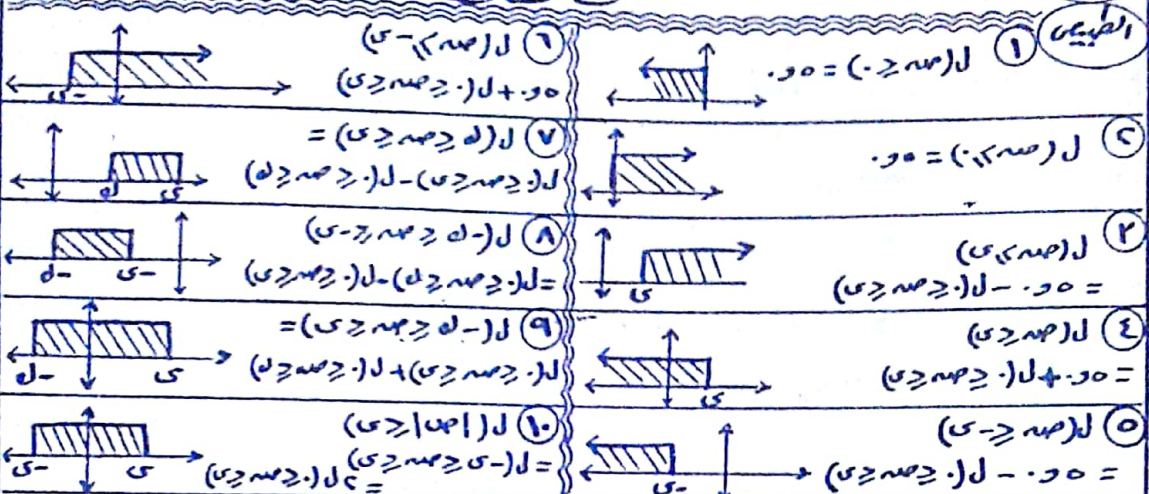 الطبيعى
① ل(صہ ≤ ٠) = ٥و٠
② ل(صہ ≥ ٠) = ٥و٠
③ ل(صہ ≥ ى)
= ٥و٠ - ل(٠ ≤ صہ ≤ ى)
ى
④ ل(صہ ≤ ى)
= ٥و٠ + ل(٠ ≤ صہ ≤ ى)
ى
⑤ ل(صہ ≤ -ى)
= ٥و٠ - ل(٠ ≤ صہ ≤ ى)
-ى
⑥ ل(صہ ≥ -ى)
٥و٠ + ل(٠ ≤ صہ ≤ ى)
-ى
⑦ ل(ل ≤ صہ ≤ ى) =
ل(٠ ≤ صہ ≤ ى) - ل(٠ ≤ صہ ≤ ل)
ل ى
⑧ ل(-ل ≤ صہ ≤ -ى)
= ل(٠ ≤ صہ ≤ ل) - ل(٠ ≤ صہ ≤ ى)
-ل -ى
⑨ ل(-ل ≤ صہ ≤ ى) =
ل(٠ ≤ صہ ≤ ى) + ل(٠ ≤ صہ ≤ ل)
-ل ى
⑩ ل(|ص| ≤ ى)
= ل(-ى ≤ صہ ≤ ى)
= ٢ل(٠ ≤ صہ ≤ ى)
-ى ى